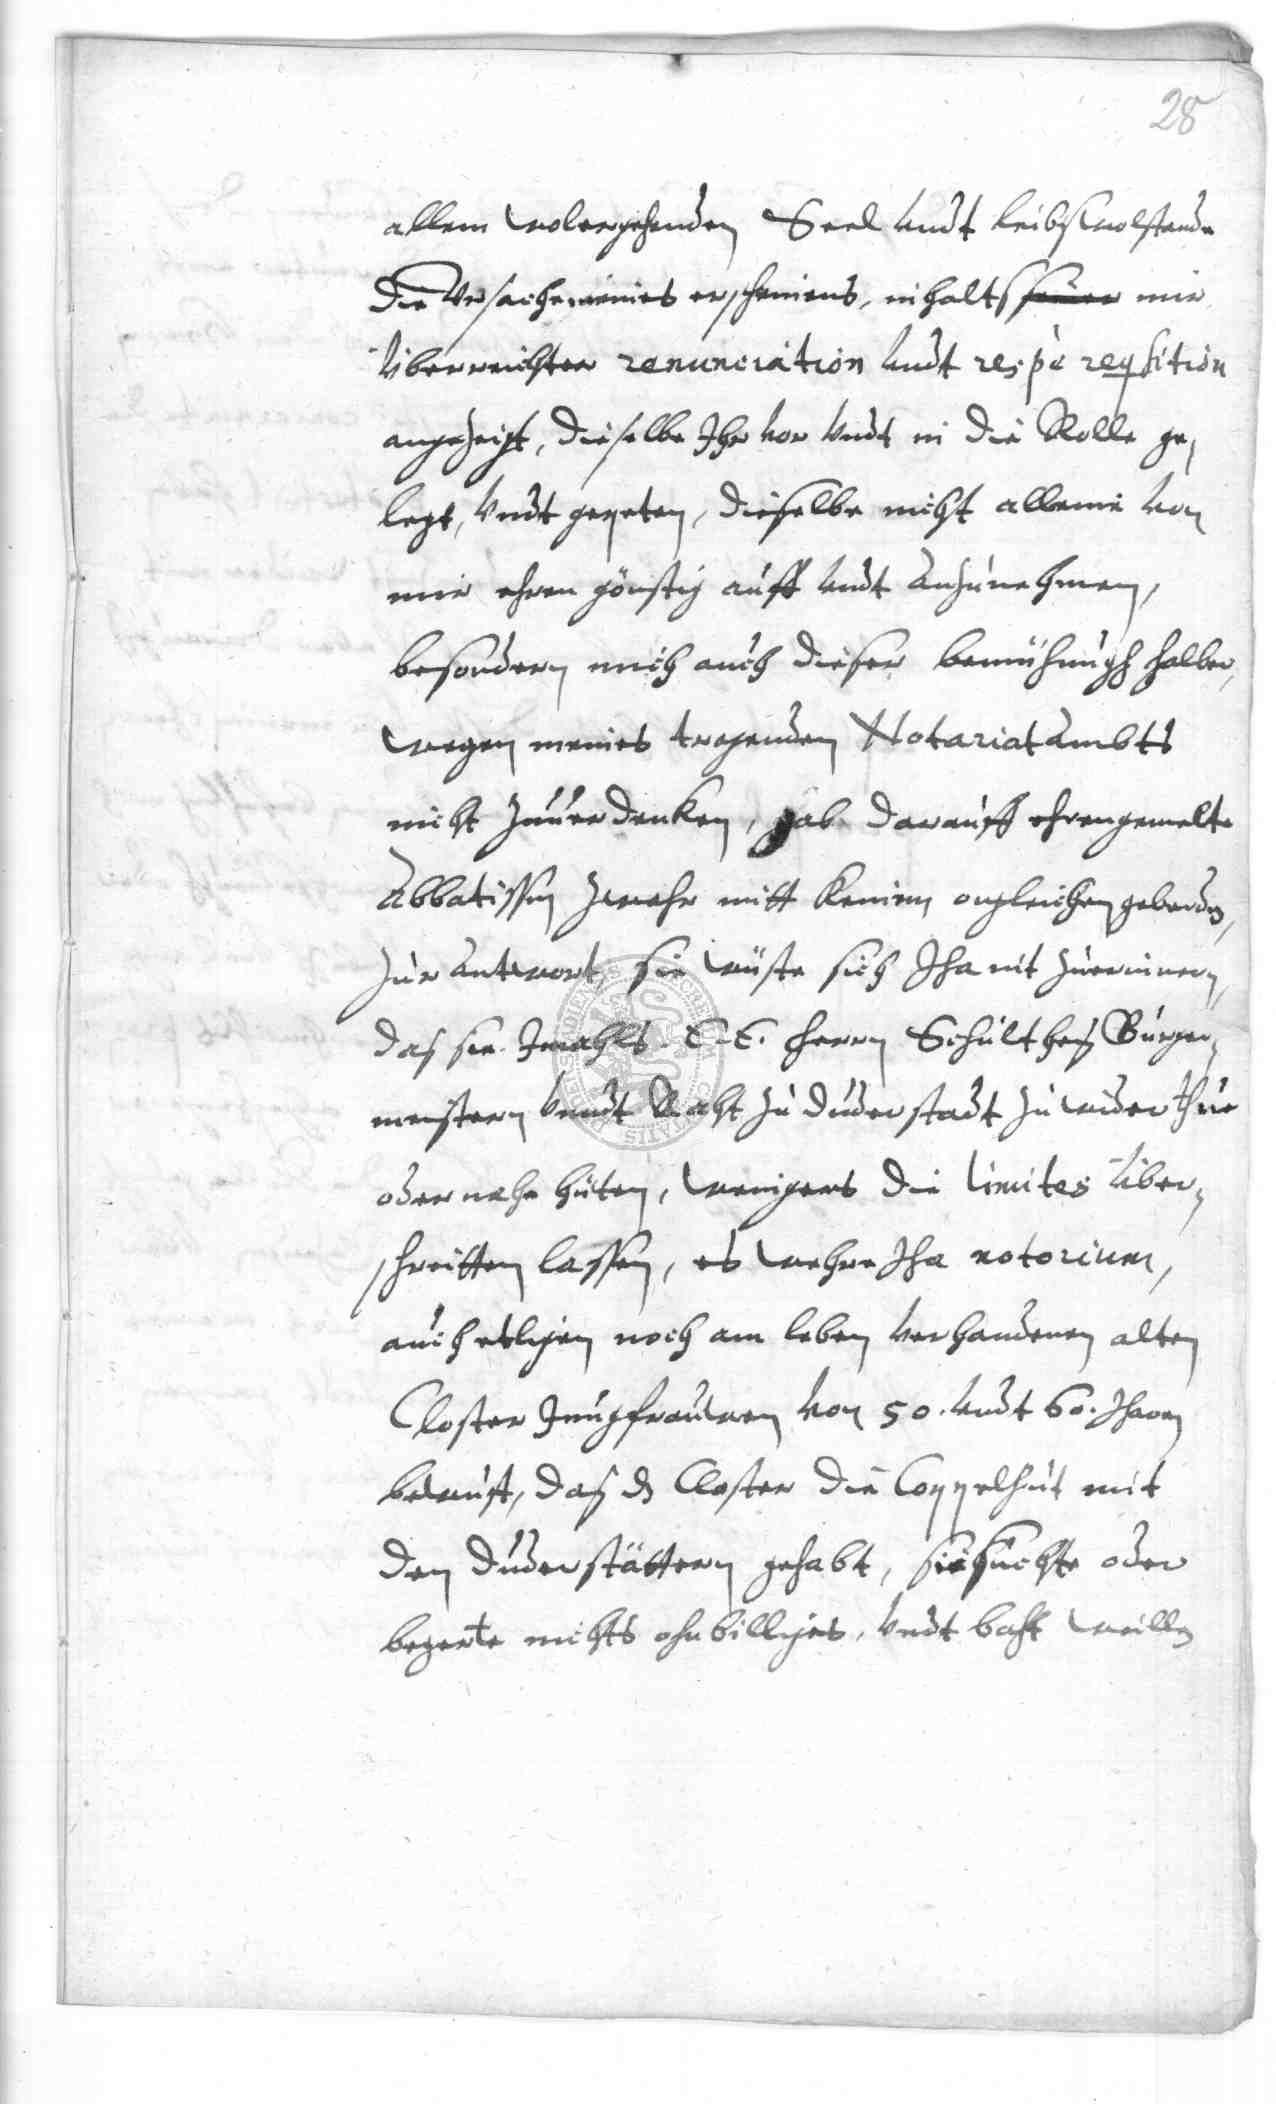 28
allem wolergehenden Seel undt leibs wolstande
die Ursache meines erscheinens, inhalts seiner mir
Uberreichter renunciation undt respè reqsition
angezeigt, dieselbe Ihr vor undt in die Rolle ge,
legt, undt gepeten, dieselbe nicht alleine von
mir ehren günstig auff undt Anzunehmen,
besondern mich auch dieser bemühungh halber,
wegen meines tragenden Notariat Ambts
nicht zuuerdenken, gab darauff ehrengemelte
Abbatissin zwahr mitt keinem ongleichen geberden,
zur Antwort, sie wüste sich Iha nit zuerinnern,
das sie Imahls E. E. Herrn Schultheß Bürger,
meistern unndt Raht zu Duderstadt zu wider thue
oder nahe hüten, weinigers die limites über,
schreitten lassen, es wehre Iha notorium,
auch etligen noch am leben verhandenen alten
Closter Jungfrauwen von 50. undt 60. Jharen
bewust, daß dz Closter die Coppelhut mit
den Duderstättern gehabt, sie suchte oder
begerte nichts ohnbilliges, undt baht wollen